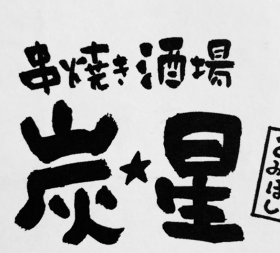 串焼き酒場
炭★星
すみぼし